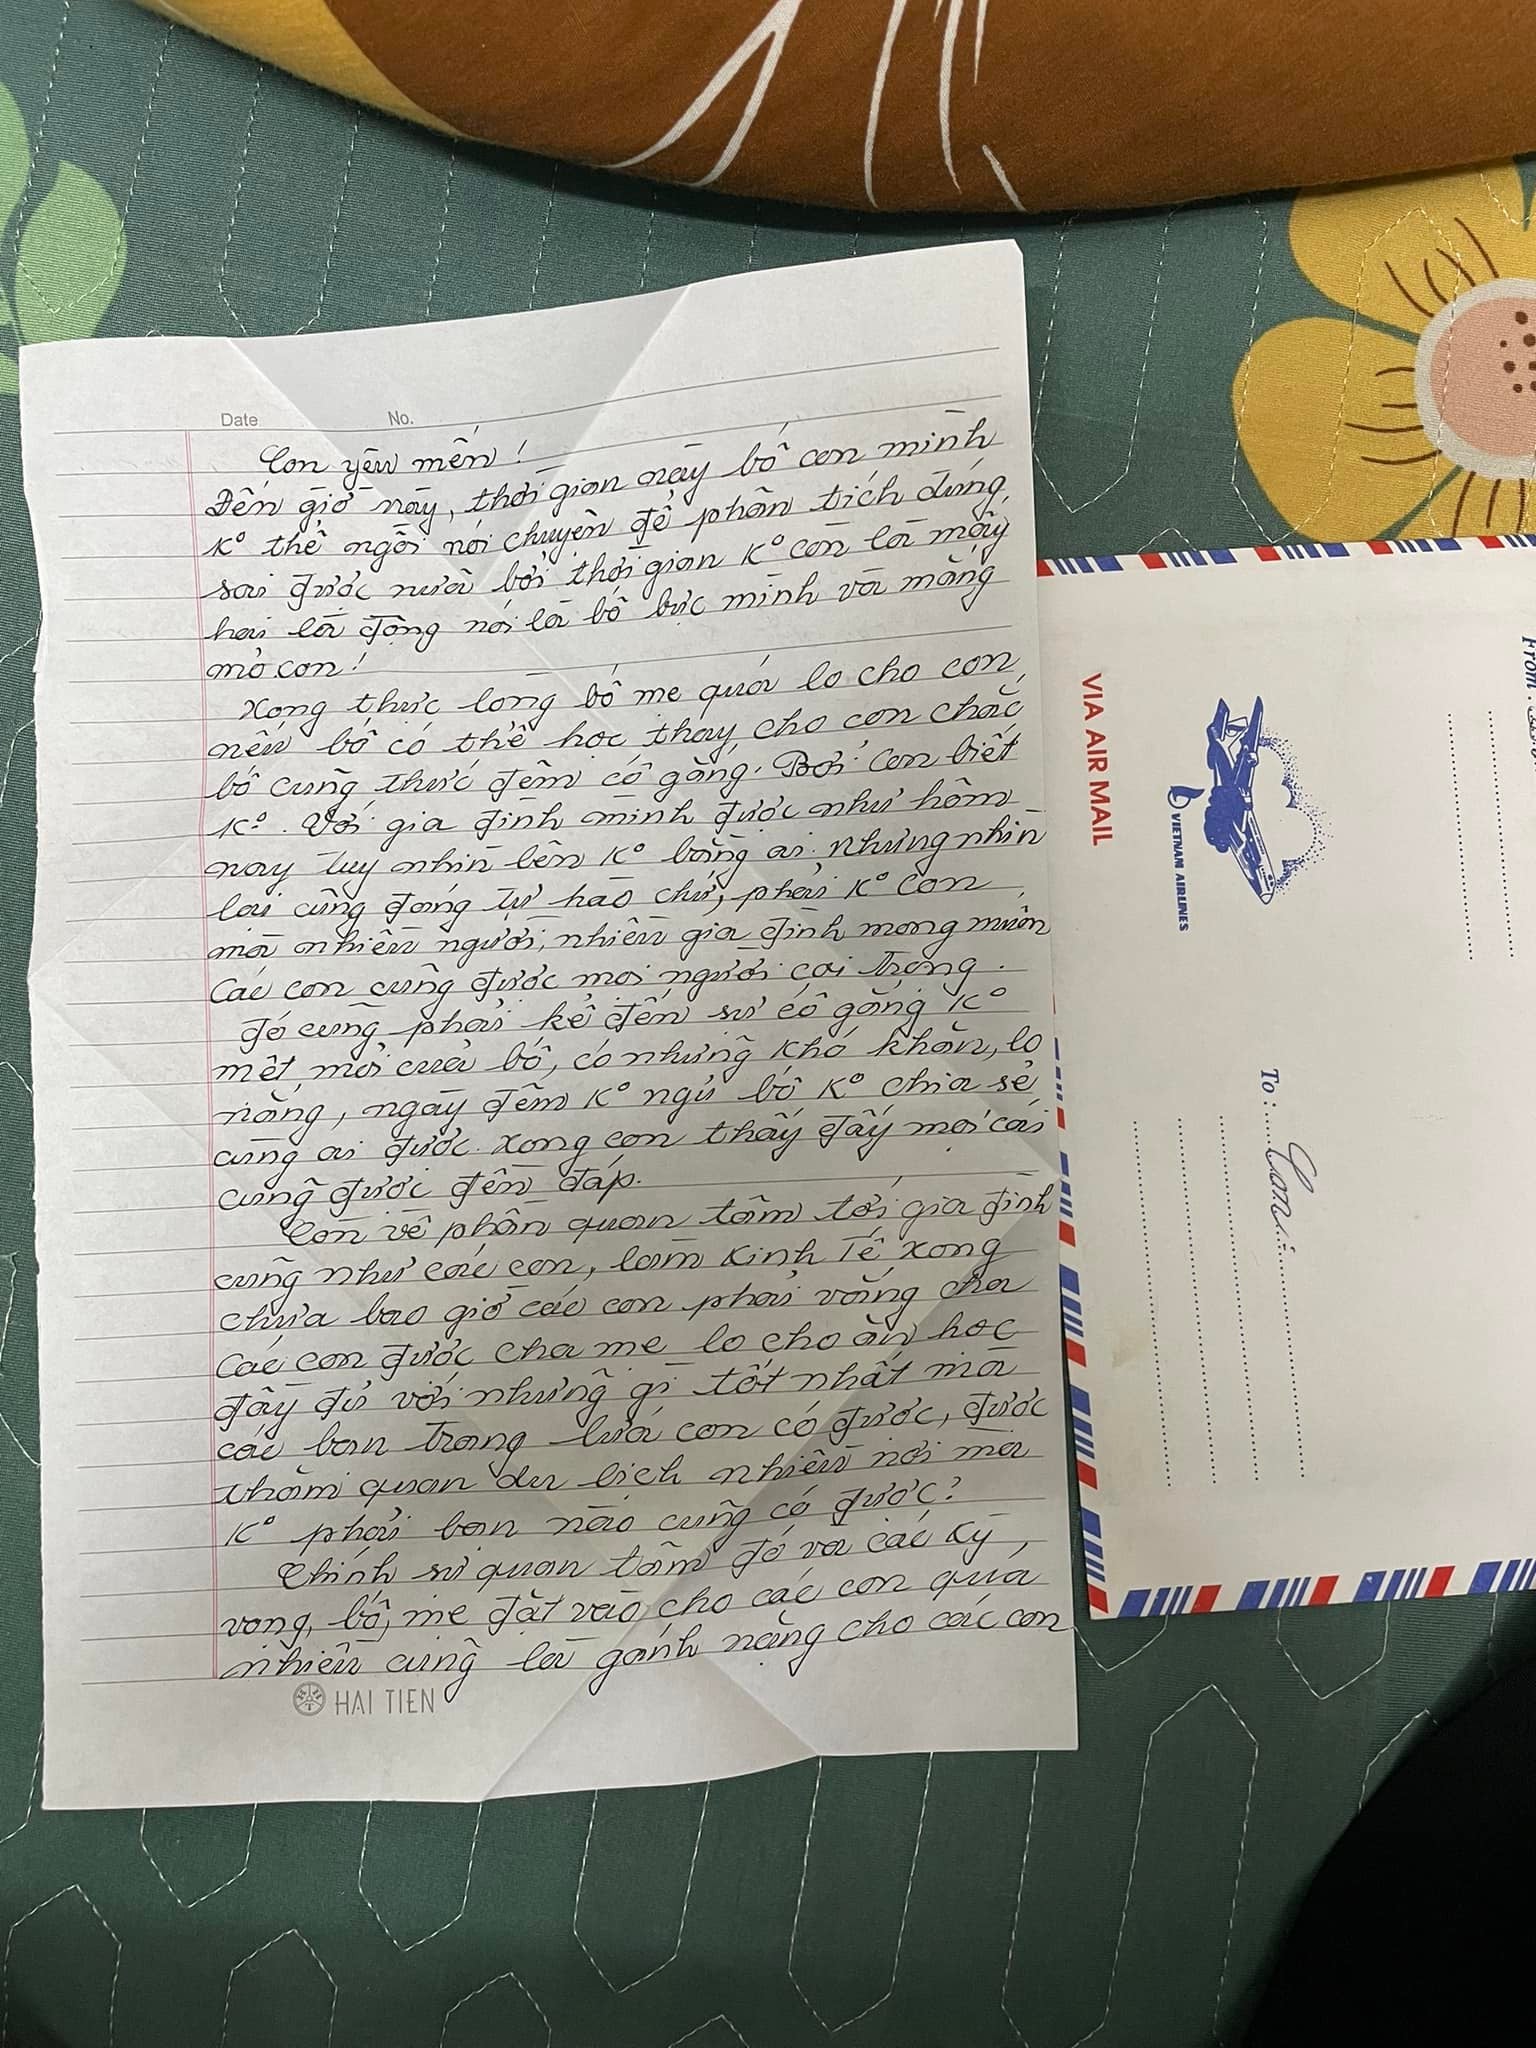 Date No.
Con yêu mến!
Đến giờ này, thời gian này bố con mình
Kº thể ngồi nói chuyện để phân tích đúng,
sai được nữa bởi thời gian Kº còn là mấy
hơi là động nói là bố bực mình và mắng
mỏ con!
Xong thực lòng bố mẹ quá lo cho con,
nếu bố có thể học thay cho con chắc
bố cũng thức đêm cố gắng. Bởi con biết
Kº. Với gia đình mình được như hôm
nay tuy nhìn lên Kº bằng ai. Nhưng nhìn
lại cũng đáng tự hào chứ, phải Kº con
mà nhiều người, nhiều gia đình mong muốn
Các con cũng được mọi người coi trọng.
đó cũng phải kể đến sự cố gắng Kº
mệt mỏi của bố, có những khó khăn, lo
nắng, ngày đêm Kº ngủ bố Kº chia sẻ
cùng ai được. Xong con thấy đấy mọi cái
cũng được đền đáp.
Còn về phần quan tâm tới gia đình
cũng như các con, làm Kinh Tế xong
chưa bao giờ các con phải vắng cha
Các con được cha mẹ lo cho ăn học
đầy đủ với những gì tốt nhất mà
các bạn trang lứa con có được, được
thăm quan du lịch nhiều nơi mà
Kº phải bạn nào cũng có được?
Chính sự quan tâm đó và các kỳ
vọng, bố, mẹ đặt vào cho các con quá
nhiều cũng là gánh nặng cho các con
HẢI TIẾN
VIA AIR MAIL
VIETNAM AIRLINES
From:
To: